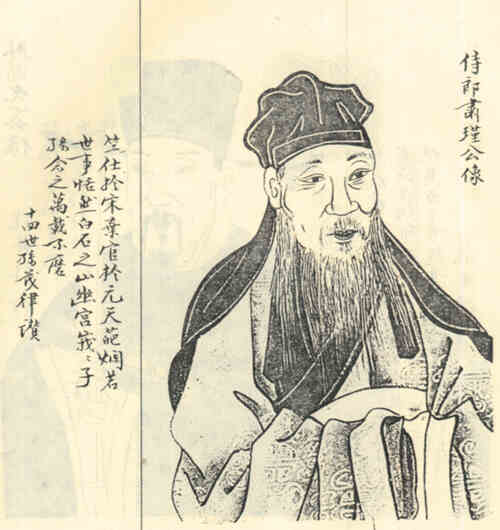 侍郎肅理公像
筮仕於宋棄官於元天葩烟若
世事恬然白石之山幽宮峩〻子
孫念之萬載不磨
十四世孫茂律讚